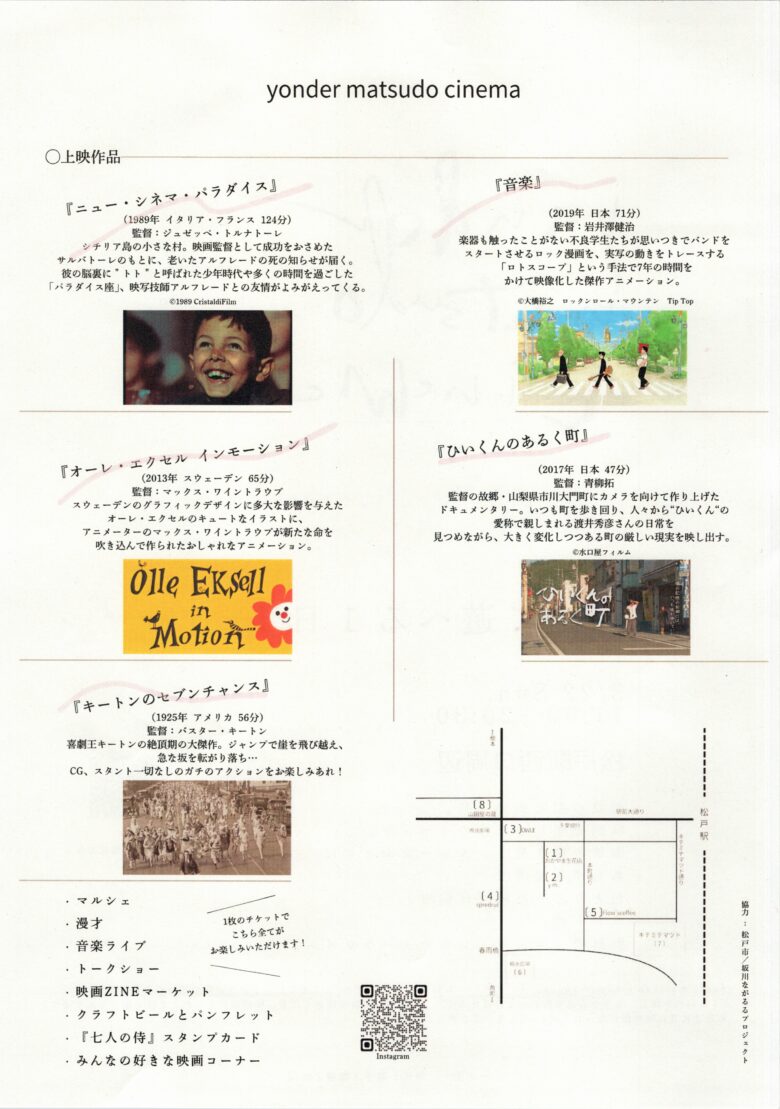 yonder matsudo cinema
○上映作品
『ニュー・シネマ・パラダイス』
(1989年 イタリア・フランス 124分)
監督：ジュゼッペ・トルナトーレ
シチリア島の小さな村。映画監督として成功をおさめた
サルバトーレのもとに、老いたアルフレードの死の知らせが届く。
彼の脳裏に＂トト＂と呼ばれた少年時代や多くの時間を過ごした
「パラダイス座」、映写技師アルフレードとの友情がよみがえってくる。
©1989 CristaldiFilm
『音楽』
(2019年 日本 71分)
監督：岩井澤健治
楽器も触ったことがない不良学生たちが思いつきでバンドを
スタートさせるロック漫画を、実写の動きをトレースする
「ロトスコープ」という手法で7年の時間を
かけて映像化した傑作アニメーション。
©大橋裕之 ロックンロール・マウンテン Tip Top
『オーレ・エクセル インモーション』
(2013年 スウェーデン 65分)
監督：マックス・ワイントラウブ
スウェーデンのグラフィックデザインに多大な影響を与えた
オーレ・エクセルのキュートなイラストに、
アニメーターのマックス・ワイントラウブが新たな命を
吹き込んで作られたおしゃれなアニメーション。
Olle EKSell
in
Motion
『ひいくんのあるく町』
(2017年 日本 47分)
監督：青柳拓
監督の故郷・山梨県市川大門町にカメラを向けて作り上げた
ドキュメンタリー。いつも町を歩き回り、人々から“ひいくん“の
愛称で親しまれる渡井秀彦さんの日常を
見つめながら、大きく変化しつつある町の厳しい現実を映し出す。
©水口屋フィルム
ひいくんの
あるく町
『キートンのセブンチャンス』
(1925年 アメリカ 56分)
監督：バスター・キートン
喜劇王キートンの絶頂期の大傑作。ジャンプで崖を飛び越え、
急な坂を転がり落ち…
CG、スタント一切なしのガチのアクションをお楽しみあれ！
・マルシェ
・漫才
・音楽ライブ
・トークショー
・映画ZINEマーケット
・クラフトビールとパンフレット
・『七人の侍』スタンプカード
・みんなの好きな映画コーナー
1枚のチケットで
こちら全てが
お楽しみいただけます！
Instagram
〔8〕
駅前大通り
松戸駅
〔3〕
〔1〕
〔2〕
〔4〕
〔5〕
キテミテマツド
〔7〕
キテミテマツド通り
春雨橋
〔6〕
協力：松戸市／坂川ながるるプロジェクト